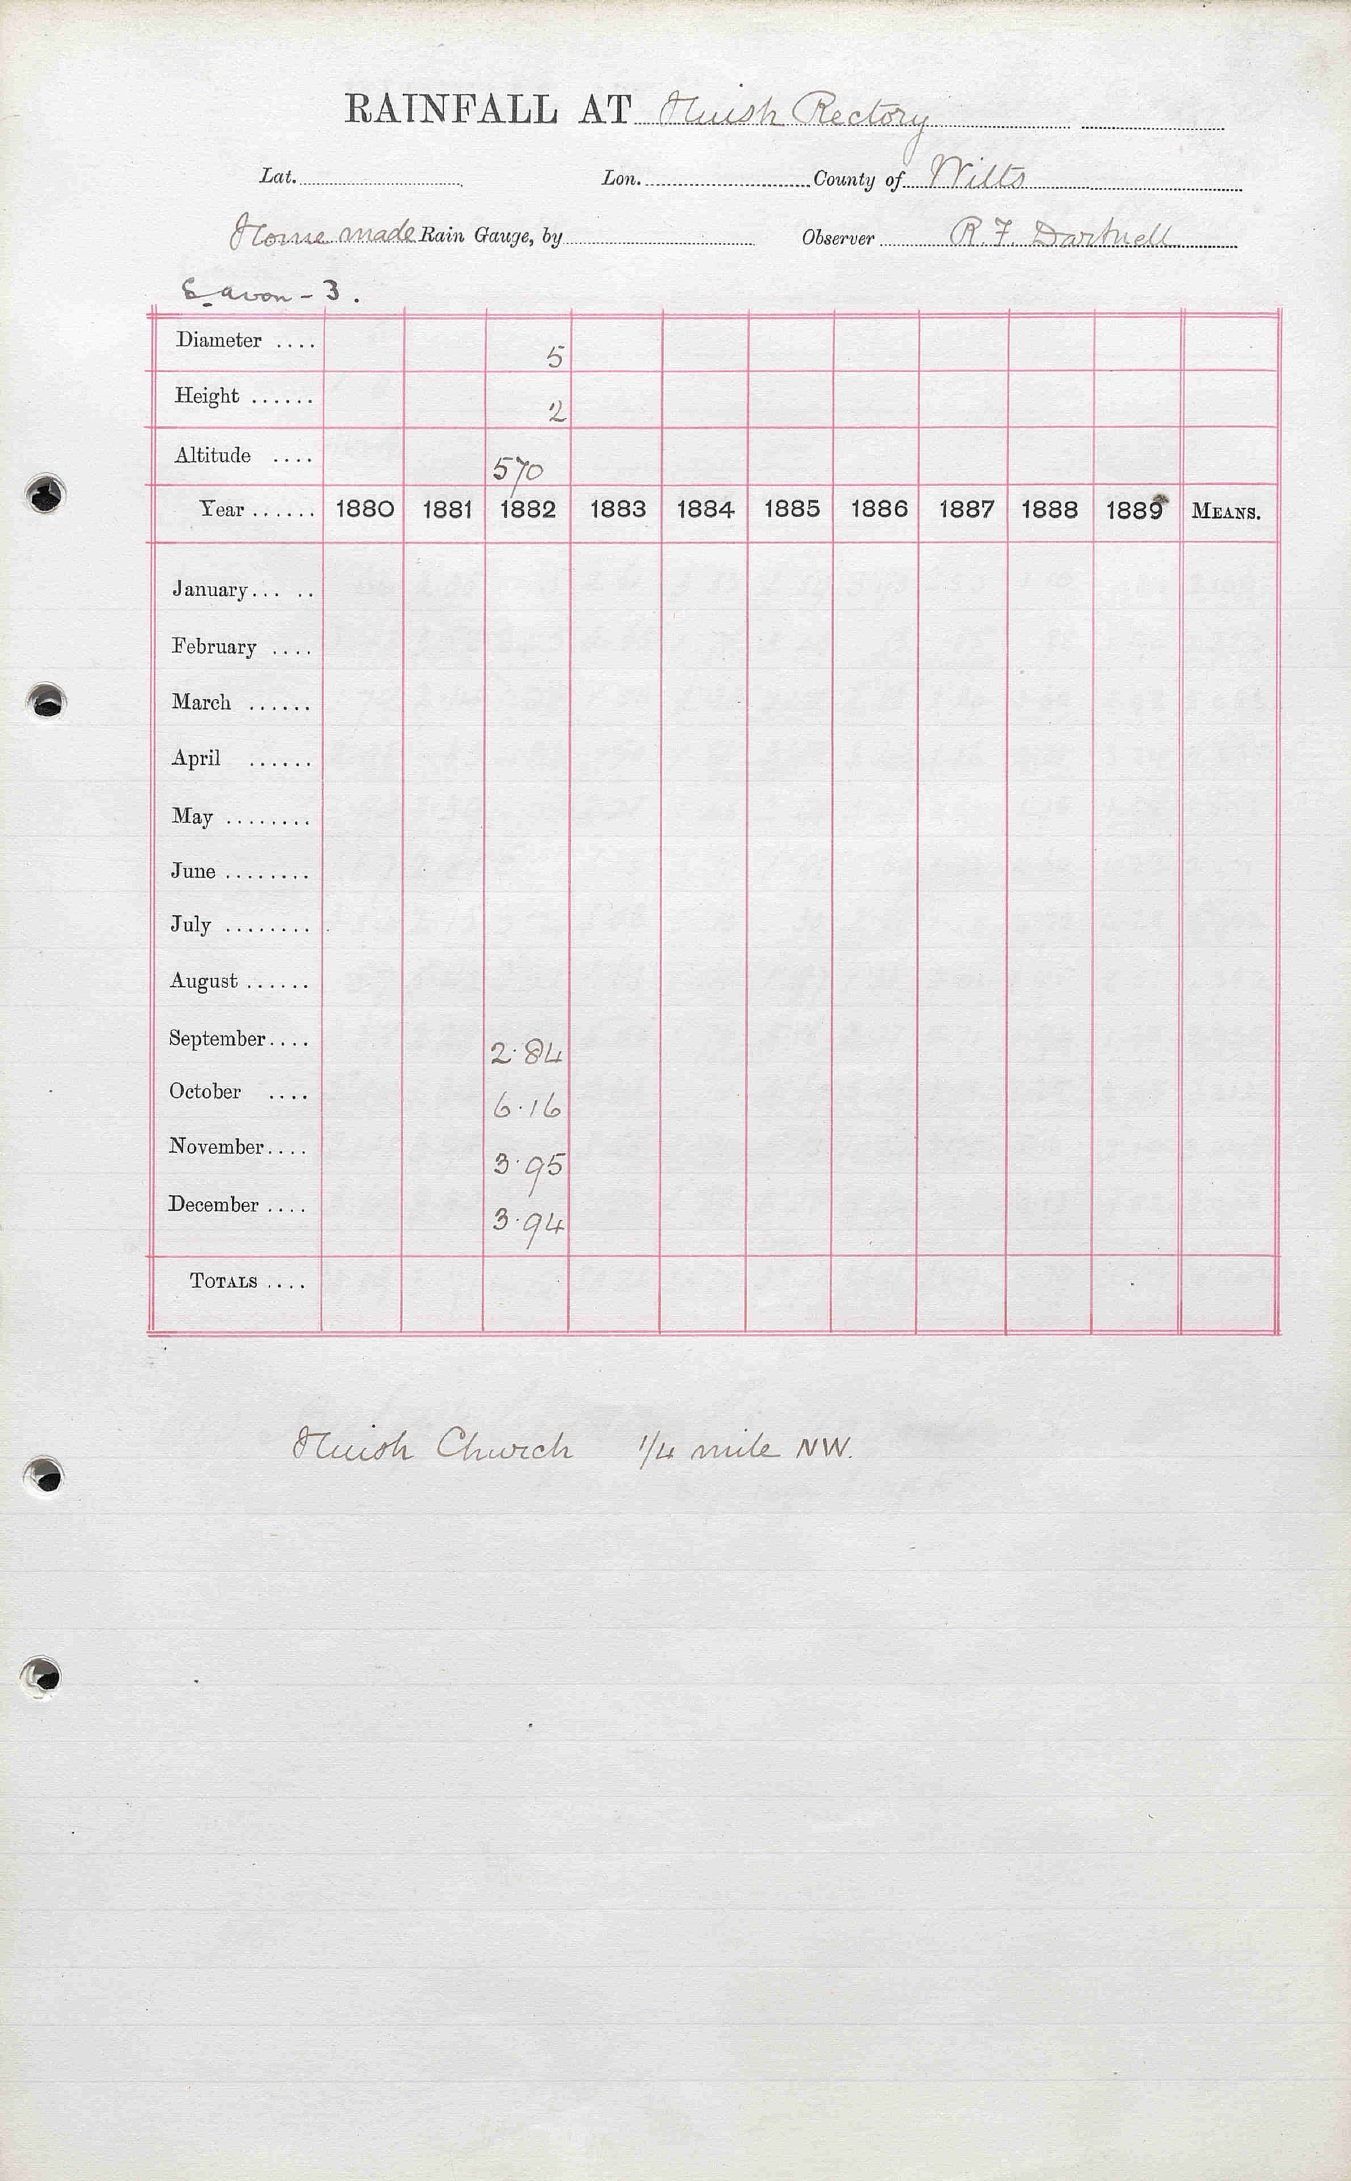 RAINFALL AT Huish Rectory
Lat. Lon. County of Wilts
Home made Rain Gauge, by Observer R. F. Dartnell
S. avon - 3.
Diameter .... 5
Height ...... 2
Altitude .... 570
Year ...... 1880 1881 1882 1883 1884 1885 1886 1887 1888 1889 MEANS.
January... ..
February ....
March ......
April ......
May ........
June ........
July ........
August ......
September.... 2.84
October .... 6.16
November.... 3.95
December .... 3.94
TOTALS ....
Huish Church 1/4 mile NW.